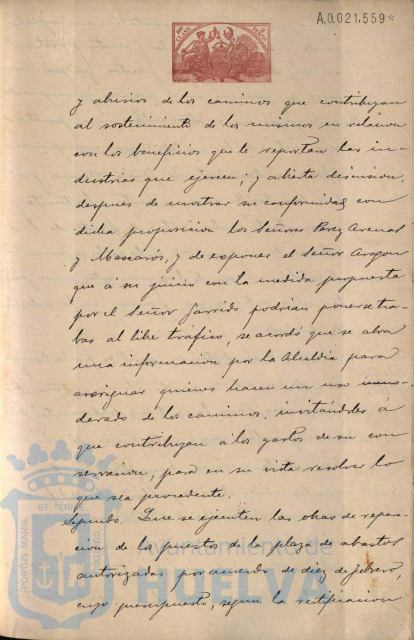 A.0.021.559*
y abusivo de los caminos que contribuyan
al sostenimiento de los mismos en relacion
con los beneficios que le reportan las in-
dustrias que ejercen; y abierta discusion,
despues de mostrar su conformidad con
dicha proposicion los Señores Perez Arenal
y Mascarós, y de exponer el Señor Aragon
que á su juicio con la medida propuesta
por el Señor Garrido podrian ponerse tra-
bas al libre tráfico, se acordó que se abra
una informacion por la Alcaldia para
averiguar quienes hacen un uso inmo-
derado de los caminos, invitándoles á
que contribuyan á los gastos de su con
servacion, para en su vista resolver lo
que sea procedente.
Segundo. Que se ejecuten las obras de repara-
cion de los puestos de la plaza de abastos
autorizadas por acuerdo de diez de febrero,
cuyo presupuesto, segun la rectificacion
PORTUS MARIS
ET TERRAE
CUSTODIA
Ayuntamiento de
HUELVA